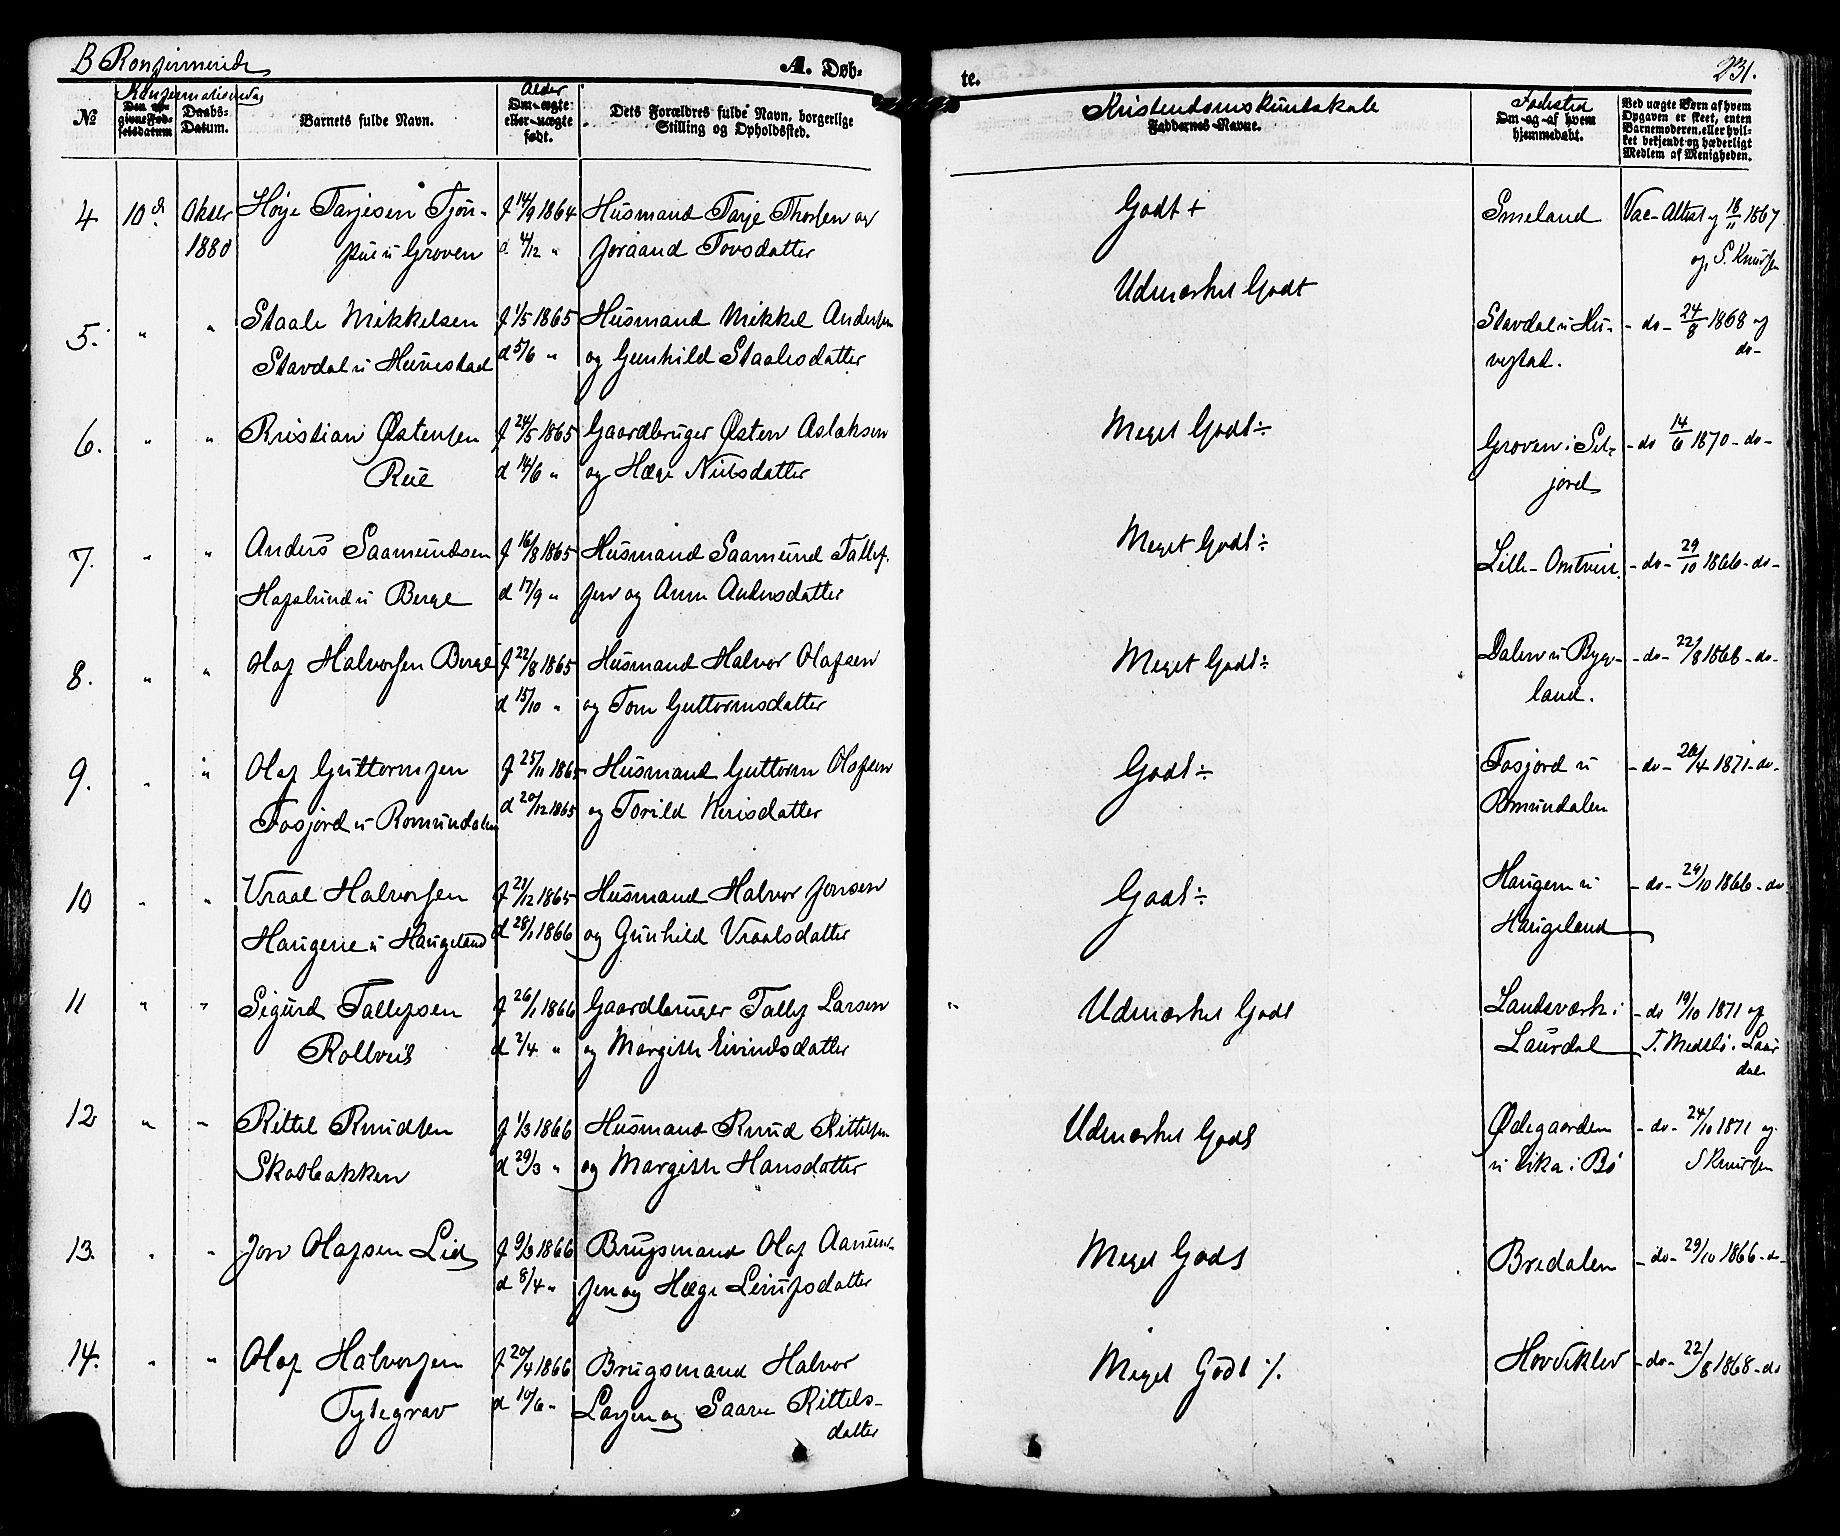 B Konfirmerede
A. Døb-
te.
231.
Konfirmationsdag
№
Den op-
givne Fød-
selsdatum
Daabs-
Datum.
Barnets fulde Navn.
Alder
Om ægte
eller uægte
født.
Dets Forældres fulde Navn, borgerlige
Stilling og Opholdssted.
Kristendomskundskab
Faddernes Navne.
Fødested
Om og af hvem
hjemmedøbt.
Ved uægte Børn af hvem
Opgaven er skeet, enten
Barnemoderen, eller hvil-
ket bekjendt og hæderligt
Medlem af Menigheden.
4 10d Oktbr Høije Tarjesen Tjøn- f 14/9 1864 Husmand Tarje Thorsen og Godt + Smeland Vac-Attest af 18/11 1867
1880 u Groven d. 4/12 " Joraand Tovsdatter og S. Knudsen
5. " " Staale Mikkelsen f 1/5 1865 Husmand Mikkel Andersen Udmærket Godt Stavdal u Hu- - do - 24/8 1868 og
Stavdal u Huvestad d 5/6 " og Gunhild Staalesdatter vestad. do-
6. " " Kristian Østensen f 24/5 1865 Gaardbruger Østen Aslaksen Meget Godt ÷ Groven i Sel- - do 14/6 1870 - do -
Rue d 14/6 " og Hæge Nilsdatter jord
7. " " Anders Saamundsen f 16/8 1865 Husmand Saamund Tallef- Meget Godt ÷ Lille-Omtvet. - do - 29/10 1866 - do -
Haslund u Berge d 17/9 " sen og Anne Andersdatter
8. " " Olaf Halvorsen Berge f 22/8 1865 Husmand Halvor Olafsen Meget Godt ÷ Dalen u Byg- - do - 22/8 1866 - do -
d 15/10 " og Tone Guttormsdatter land.
9. " " Olaf Guttormsen f 25/11 1865 Husmand Guttorm Olafsen Godt ÷ Fosjord u - do - 1871 - do -
Fosjord u Romundalen d 20/12 1865 og Torild datter Romundalen
10 " " Vraal Halvorsen f 21/12 1865 Husmand Halvor Jonsen Godt ÷ Haugene u - do - 1866 - do
Haugene u Haugeland d 28/1 1866 og Gunhild Vraalsdatter Haugeland
11 " " Sigurd Tallefsen f 26/1 1866 Gaardbruger Tallef Larsen " Udmærket Godt Landsværk i - do 19/10 1871 af
Rollveit d 2/4 " og Margith Eivindsdatter Laurdal T. i Laur
dal
12 " " Kittel Knudsen f 1/3 1866 Husmand Knud Kittelsen Udmærket Godt Ødegaarden - do - 24/10 1871 og
Skotbakken d 29/3 " og Margith Hansdatter u Eika i Bø S Knudsen
13. " " Jon Olafsen Lid f 9/3 1866 Brugsmand Olaf Aanund- Meget Godt Bredalen - do - 29/10 1866 - do -
d 8/4 " sen og Hæge Leiufsdatter
14. " " Olaf Halvorsen f 20/4 1866 Brugsmand Halvor Meget Godt ./. Hovdeklev - do - 22/8 1868 - do
Tytegrav d 10/6 " Larsen og Saave Kittels-
datter